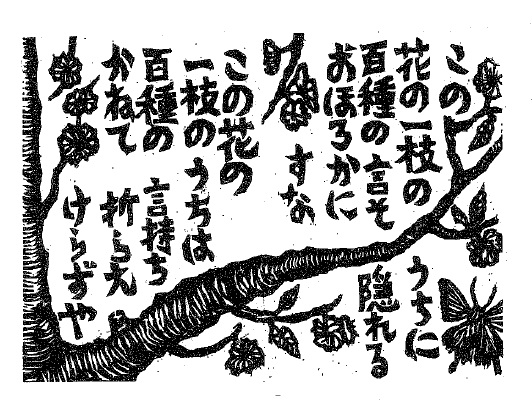 この
花の一枝の うちに
百種の言そ 隠れる
おほろかに
すな
この花の
一枝の うちは
百種の 言持ち
かねて 折らえ
けらずや